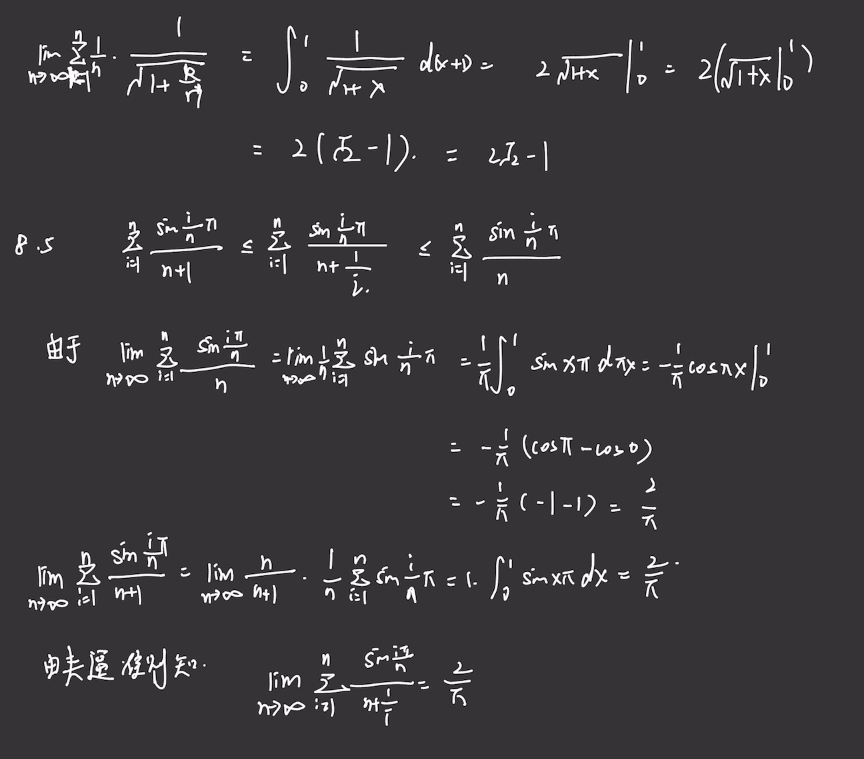 lim n→∞ Σ_{k=1}^{n} 1/n · 1/√(1+k/n) = ∫₀¹ 1/√(1+x) d(x+1) = 2√(1+x) |₀¹ = 2(√(1+x) |₀¹)
= 2(√2 -1). = 2√2 -1
8.5 Σ_{i=1}^{n} (sin i/n π)/(n+1) ≤ Σ_{i=1}^{n} (sin i/n π)/(n+1/i.) ≤ Σ_{i=1}^{n} (sin i/n π)/n
由于 lim n→∞ Σ_{i=1}^{n} (sin iπ/n)/n = lim n→∞ 1/n Σ_{i=1}^{n} sin i/n π = 1/π ∫₀¹ sin xπ dπx = -1/π cosπx |₀¹
= -1/π (cosπ - cos0)
= -1/π (-1-1) = 2/π
lim n→∞ Σ_{i=1}^{n} (sin i/n π)/(n+1) = lim n→∞ n/(n+1) · 1/n Σ_{i=1}^{n} sin i/n π = 1. ∫₀¹ sin xπ dx = 2/π.
由夹逼准则知. lim n→∞ Σ_{i=1}^{n} (sin iπ/n)/(n+1/i) = 2/π